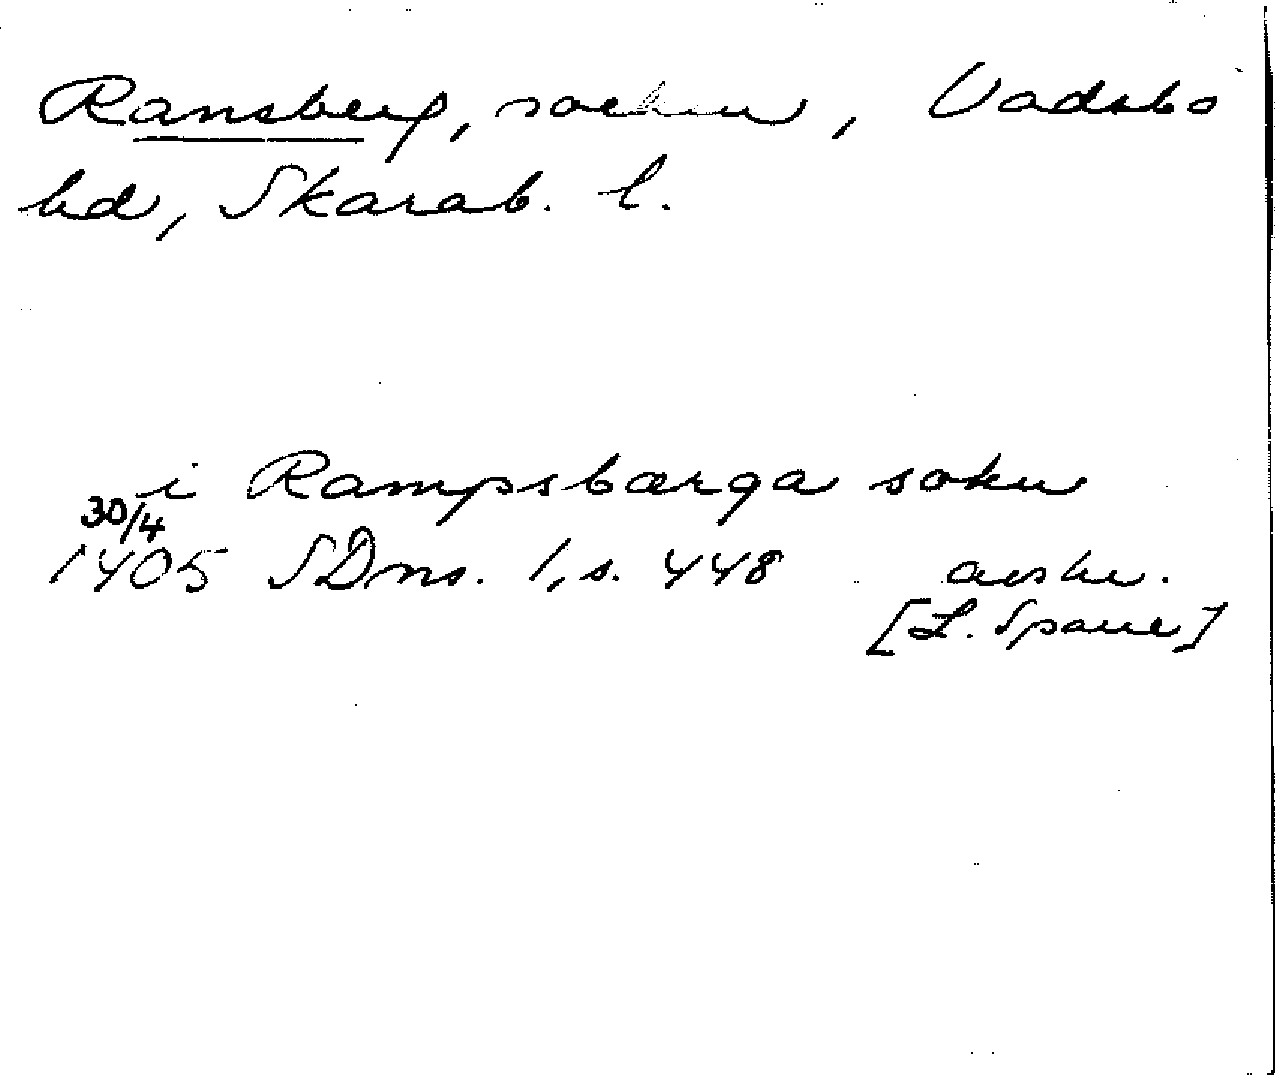 Ransberg, socken, Vadsbo
hd, Skarab. l.
i Rampsbærga sokn
30/4
1405 SDns. 1, s. 448 avskr.
[L. Sparre]